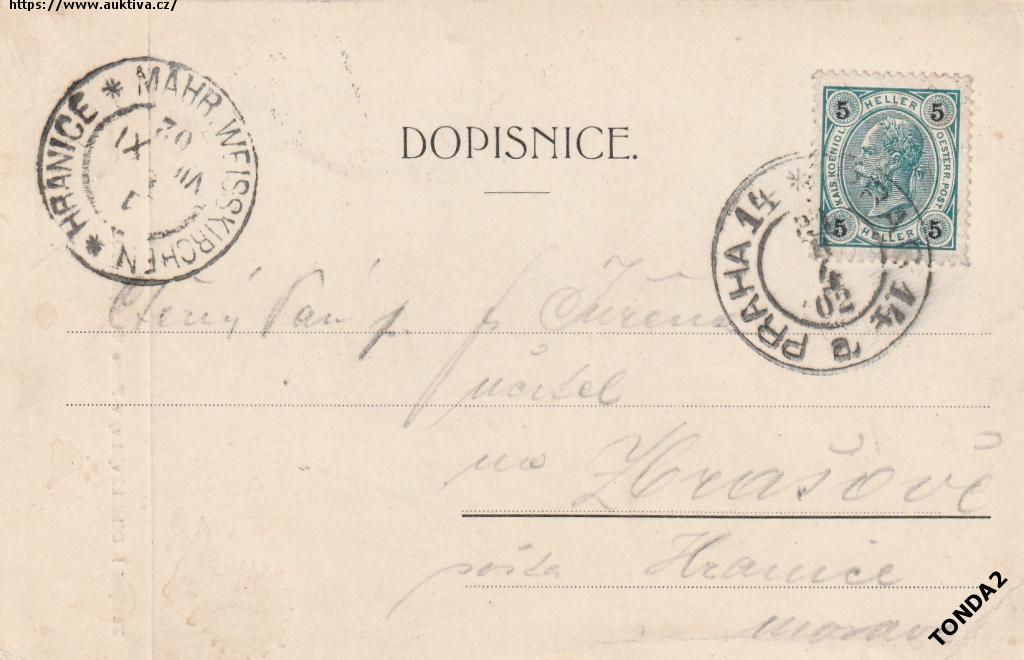 https://www.auktiva.cz/
* HRANICE * MÄHR. WEISSKIRCHEN
02
DOPISNICE.
5 HELLER 5
KAIS. KOENIGL. OESTERR. POST
5 HELLER 5
PRAHA 14 * 14
02
Ctěný Pán p.
učitel
na Zbrašově
pošta Hranice
Morava
TONDA2